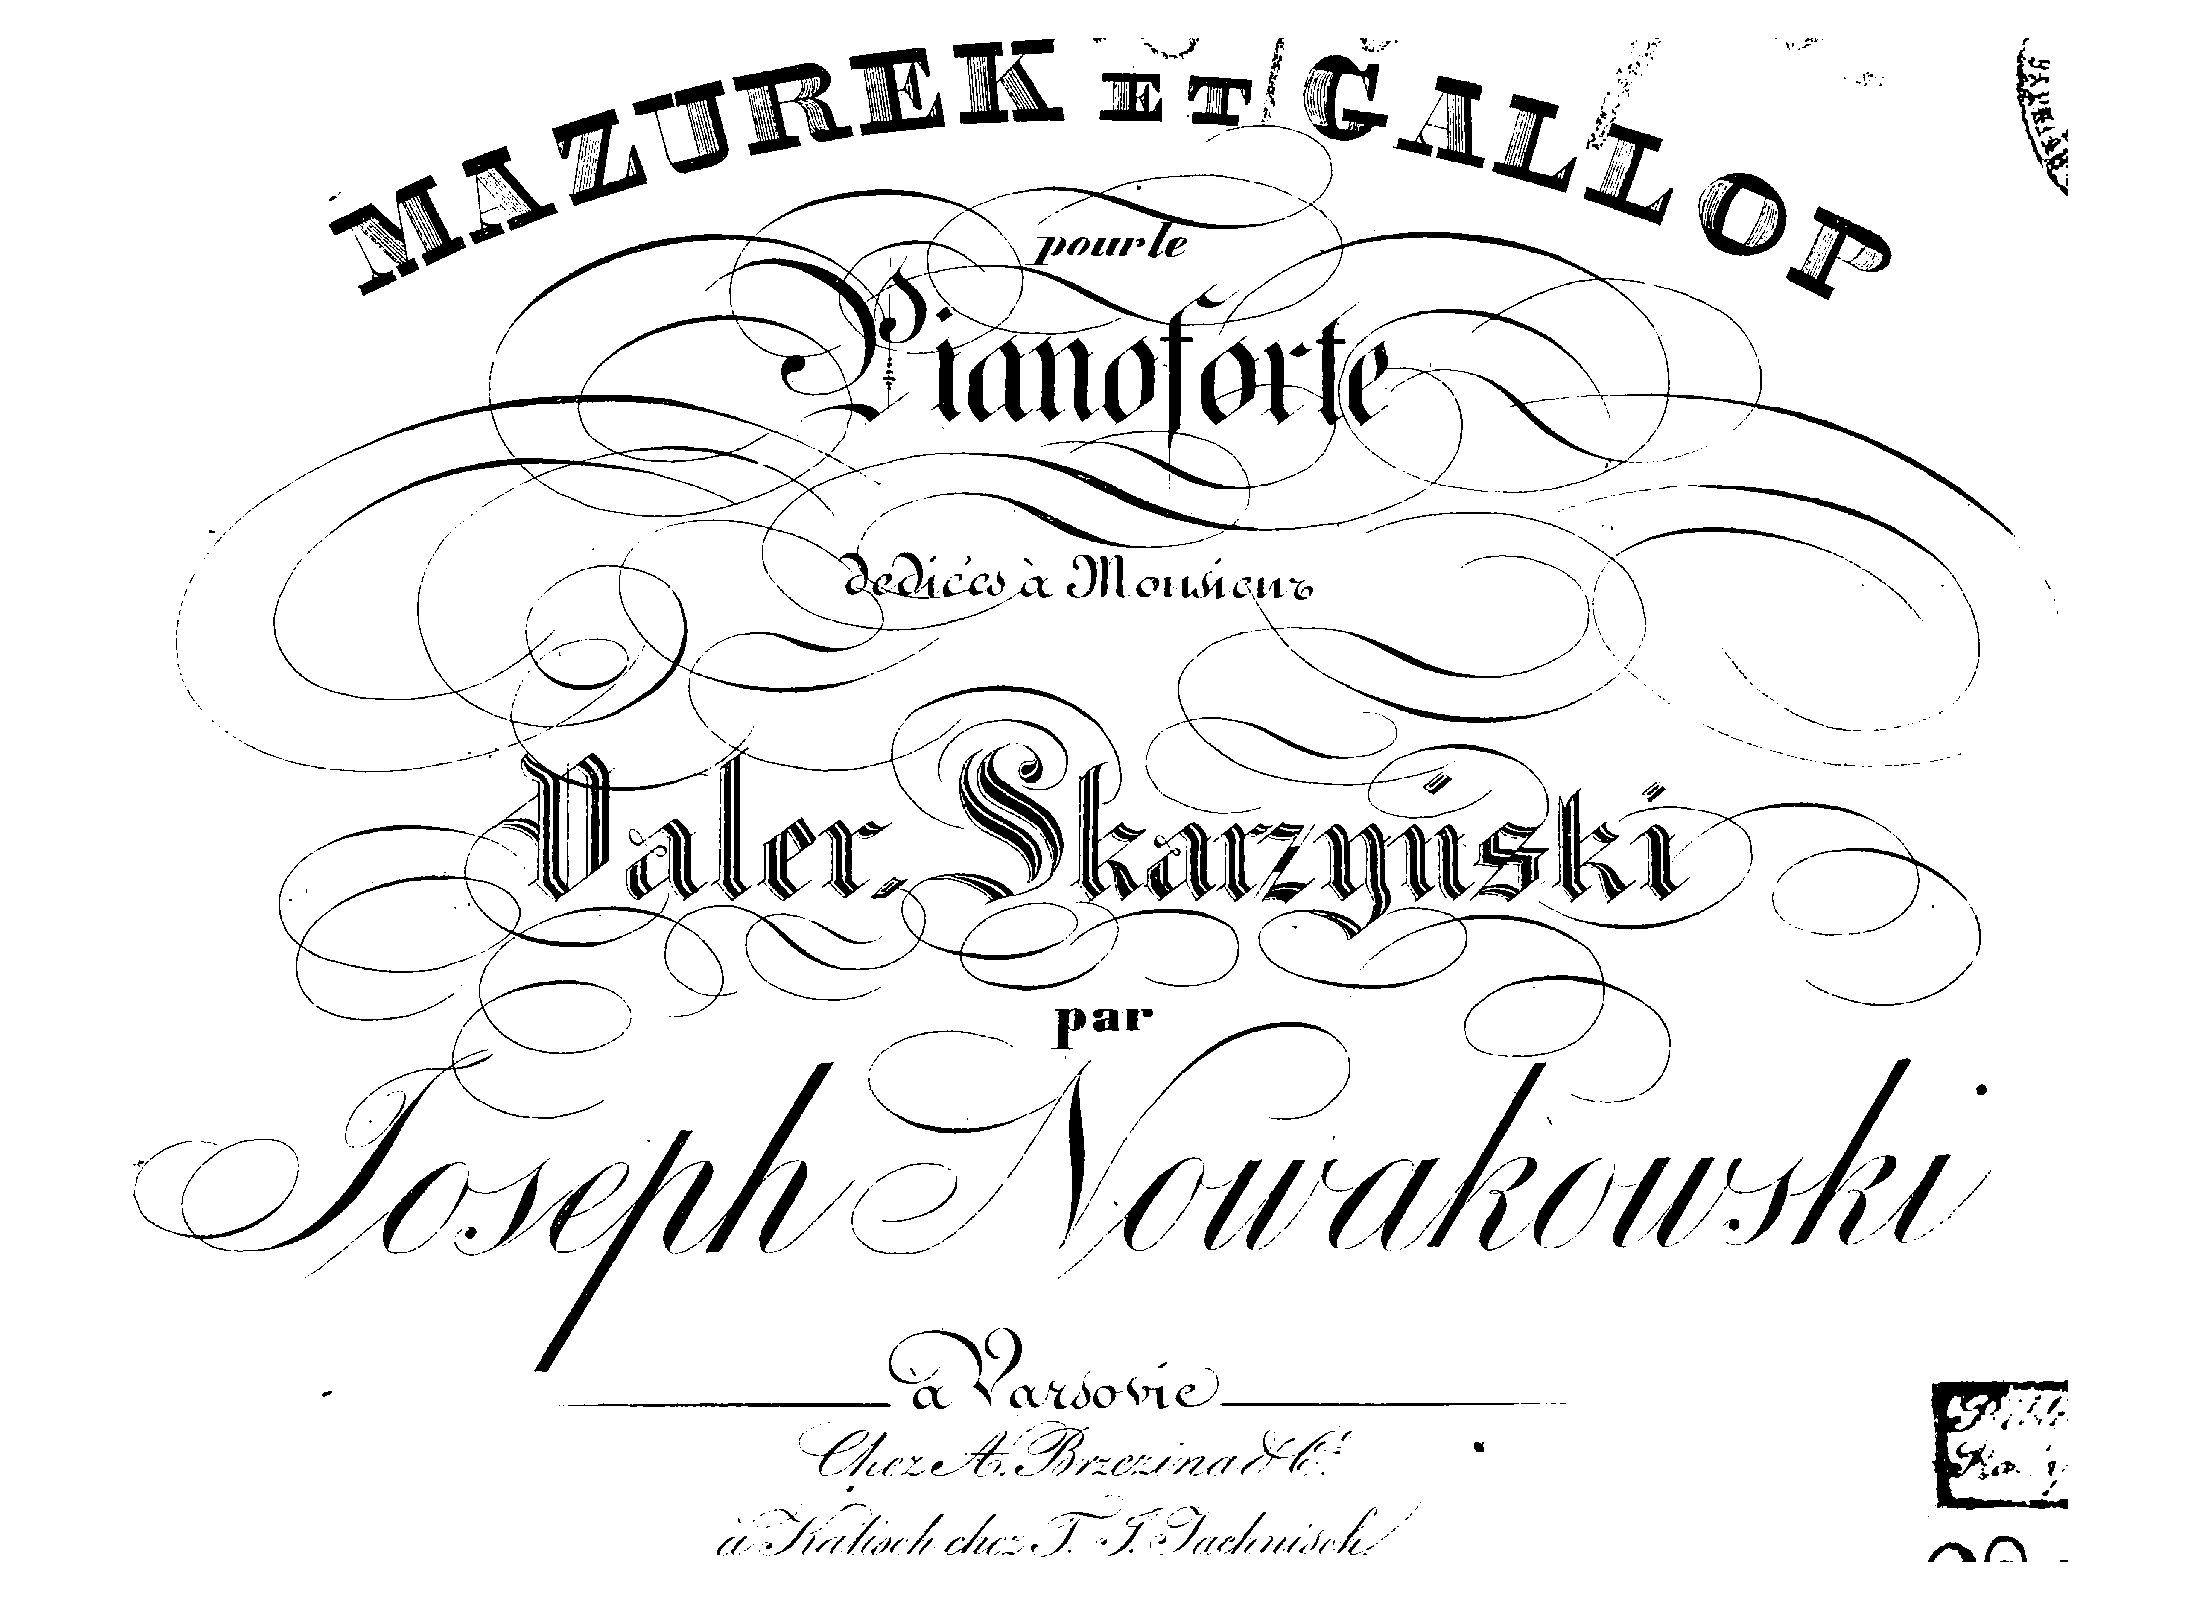 MAZUREK ET GALLOP
pour le
Pianoforte
dediées à Monsieur
Valer. Skarzyński
par
Joseph Nowakowski
à Varsovie
Chez A. Brzezina & Cie
à Kalisch chez T. I. Jachnisch